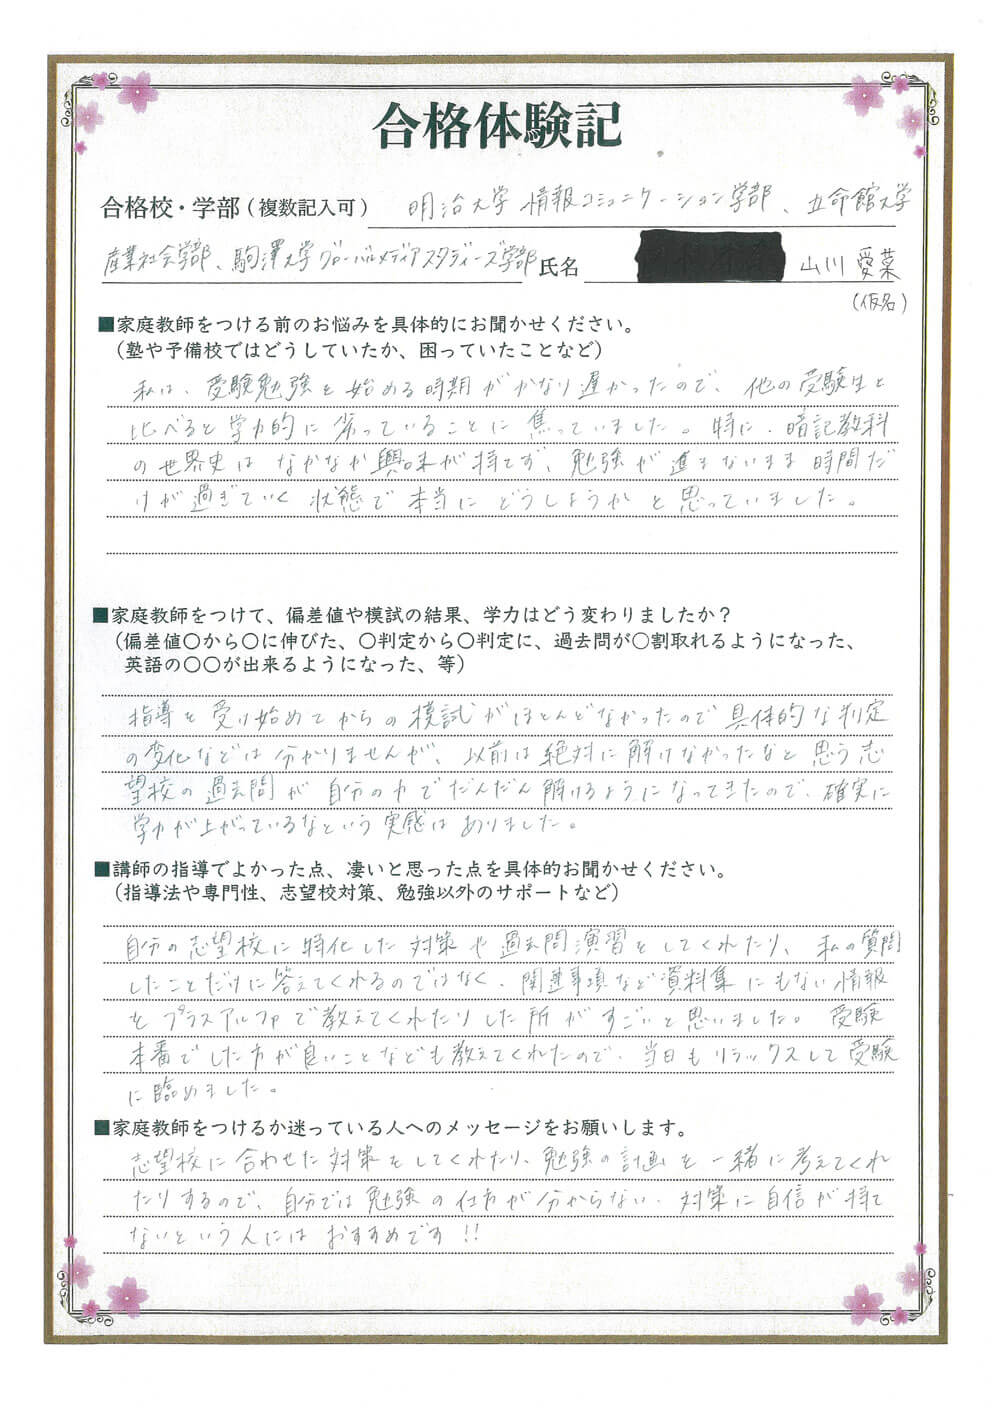 合格体験記
合格校・学部(複数記入可) 明治大学 情報コミュニケーション学部、立命館大学
産業社会学部、駒澤大学グローバルメディアスタディーズ学部 氏名 山川 愛菜
(仮名)
■家庭教師をつける前のお悩みを具体的にお聞かせください。
(塾や予備校ではどうしていたか、困っていたことなど)
私は、受験勉強を始める時期がかなり遅かったので、他の受験生と
比べると学力的に劣っていることに焦っていました。特に、暗記教科
の世界史はなかなか興味が持てず、勉強が進まないまま時間だ
けが過ぎていく状態で本当にどうしようかと思っていました。
■家庭教師をつけて、偏差値や模試の結果、学力はどう変わりましたか?
(偏差値〇から〇に伸びた、〇判定から〇判定に、過去問が〇割取れるようになった、
英語の〇〇が出来るようになった、等)
指導を受け始めてからの模試がほとんどなかったので具体的な判定
の変化などは分かりませんが、以前は絶対に解けなかったなと思う志
望校の過去問が自分の力でだんだん解けるようになってきたので、確実に
学力が上がっているなという実感はありました。
■講師の指導でよかった点、凄いと思った点を具体的お聞かせください。
(指導法や専門性、志望校対策、勉強以外のサポートなど)
自分の志望校に特化した対策や過去問演習をしてくれたり、私の質問
したことだけに答えてくれるのではなく、関連事項など資料集にもない情報
をプラスアルファで教えてくれたりした所がすごいと思いました。受験
本番でした方が良いことなども教えてくれたので、当日もリラックスして受験
に臨めました。
■家庭教師をつけるか迷っている人へのメッセージをお願いします。
志望校に合わせた対策をしてくれたり、勉強の計画を一緒に考えてくれ
たりするので、自分では勉強の仕方が分からない、対策に自信が持て
ないという人にはおすすめです!!